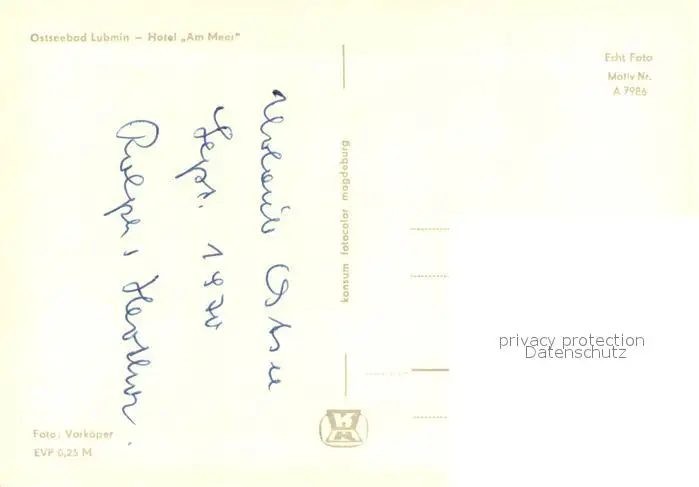 Ostseebad Lubmin – Hotel „Am Meer"
Echt Foto
Motiv Nr.
A 7986
Urlaub Ostsee
Sept. 1970
konsum fotocolor magdeburg
privacy protection
Datenschutz
Foto: Vorköper
EVP 0,25 M